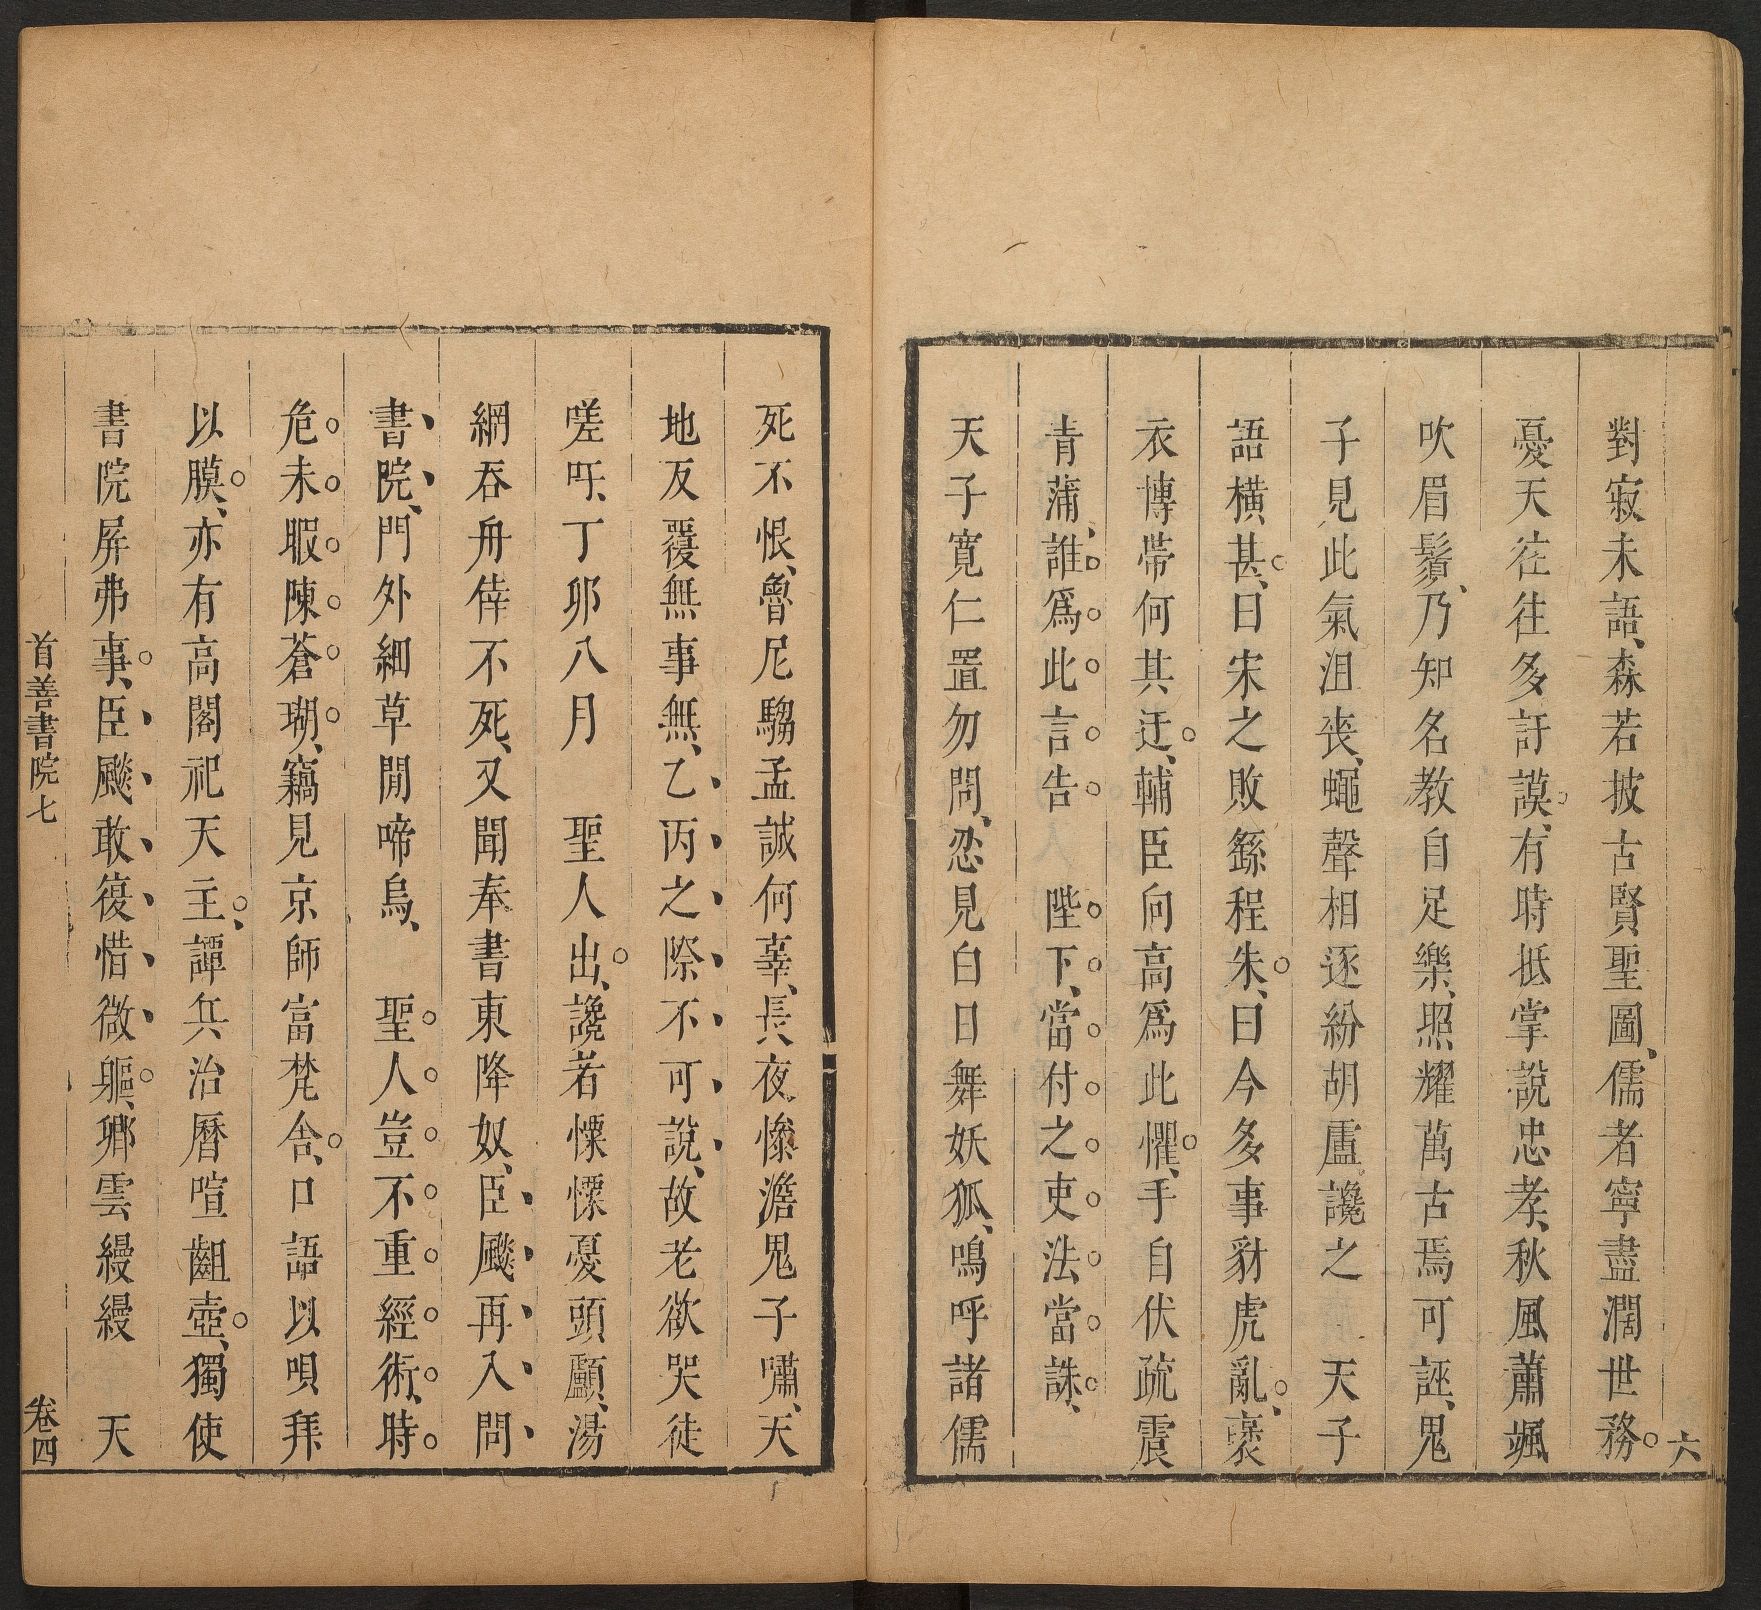 對寂未語森若披古賢聖圖儒者寧盡濶世務
六
憂天往往多訏謨有時抵掌說忠孝秋風蕭颯
吹眉鬚乃知名教自足樂照耀萬古焉可誣鬼
子見此氣沮喪蠅聲相逐紛胡盧讒之　天子
語橫甚曰宋之敗繇程朱曰今多事豺虎亂褒
衣博帶何其迂輔臣向高爲此懼手自伏疏震
青蒲誰爲此言告　陛下當付之吏法當誅
天子寬仁置勿問忍見白日舞妖狐嗚呼諸儒
死不恨魯尼騶孟誠何辜長夜慘澹鬼子嘯天
地反覆無事無乙丙之際不可說故老欲哭徒
嗟吁丁卯八月　聖人出讒者慄慄憂頭顱湯
網吞舟倖不死又聞奉書東降奴臣颷再入問
書院門外細草閒啼烏　聖人豈不重經術時
危未暇陳蒼瑚竊見京師富梵舍口語以唄拜
以膜亦有高閣祀天主譚兵治曆喧齟壺獨使
書院屏弗事臣颷敢復惜微軀鄉雲縵縵　天
首善書院七
卷四